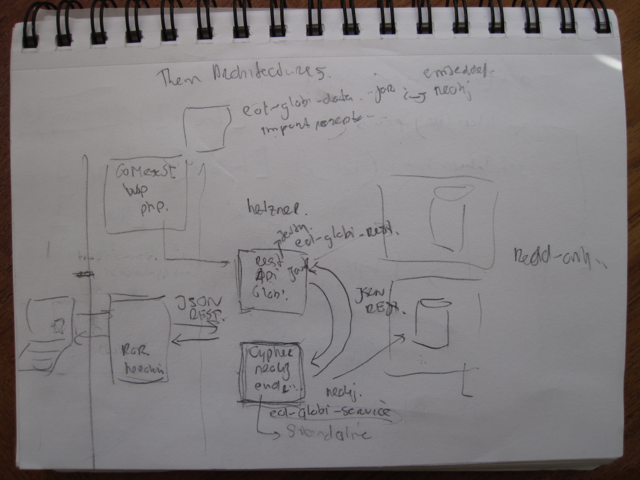 Them Architectures.
eol-globi-data -.jar → embedded.
neo4j
import
GoMexSI
php.
hetzner.
jetty
eol-globi-rest.
Rest
API
Globi.
java
Read-only
JSON
REST.
JSON
REST.
RoR
heroku
Cypher
neo4j
neo4j.
eol-globi-service
→ Standalone